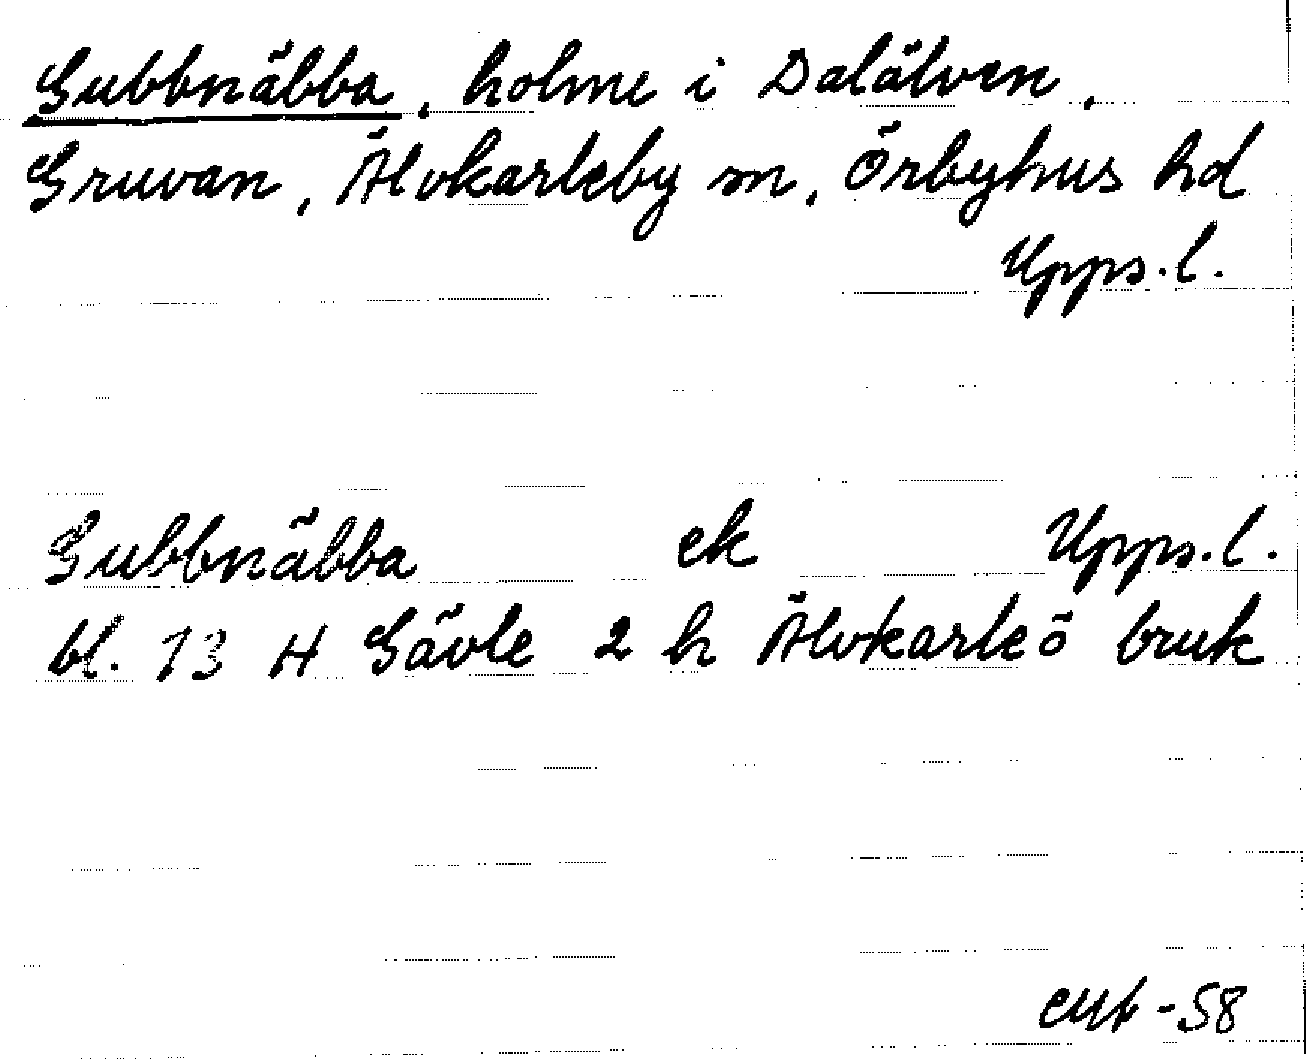 Gubbnäbba, holme i Dalälven,
Gruvan, Älvkarleby sn, Örbyhus hd
Upps.l.
Gubbnäbba ek Upps.l.
bl. 13 H Gävle 2 h Älvkarleö bruk
-58